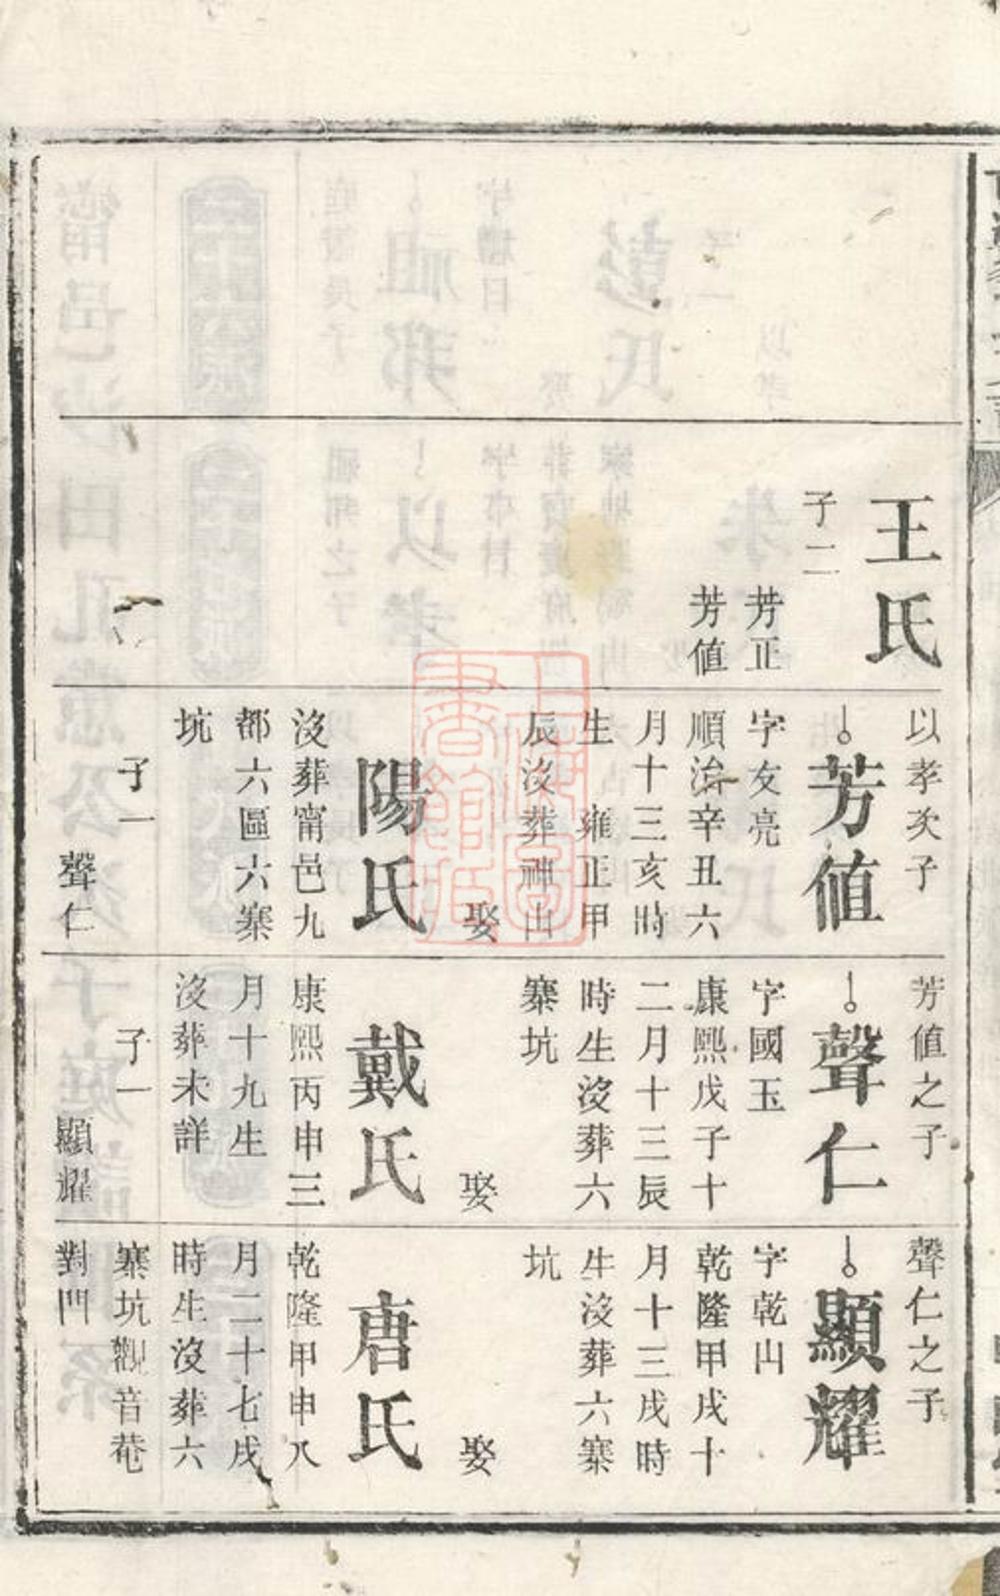 王氏
子二
芳正
芳値
以孝次子
芳値
字友亮
順治辛丑六
月十三亥時
生 雍正甲
辰沒葬神山
娶
陽氏
沒葬甯邑九
都六區六寨
坑
子一
聲仁
芳値之子
聲仁
字國玉
康熙戊子十
二月十三辰
時生沒葬六
寨坑
娶
戴氏
康熙丙申三
月十九生
沒葬未詳
子一
顯耀
聲仁之子
顯耀
字乾山
乾隆甲戌十
月十三戌時
生沒葬六寨
坑
娶
唐氏
乾隆甲申八
月二十七戌
時生沒葬六
寨坑觀音菴
對門